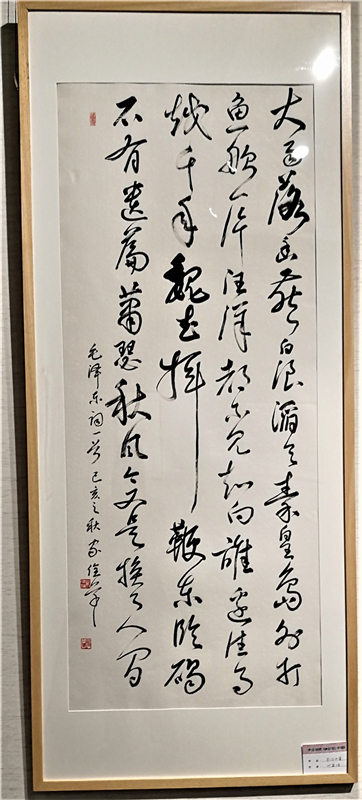 大雨落幽燕白浪滔天秦皇島外打
鱼船一片汪洋都不见知向誰边往事
越千年魏武挥鞭东临碣
石有遺篇蕭瑟秋风今又是换了人间
毛泽东词一首己亥之秋